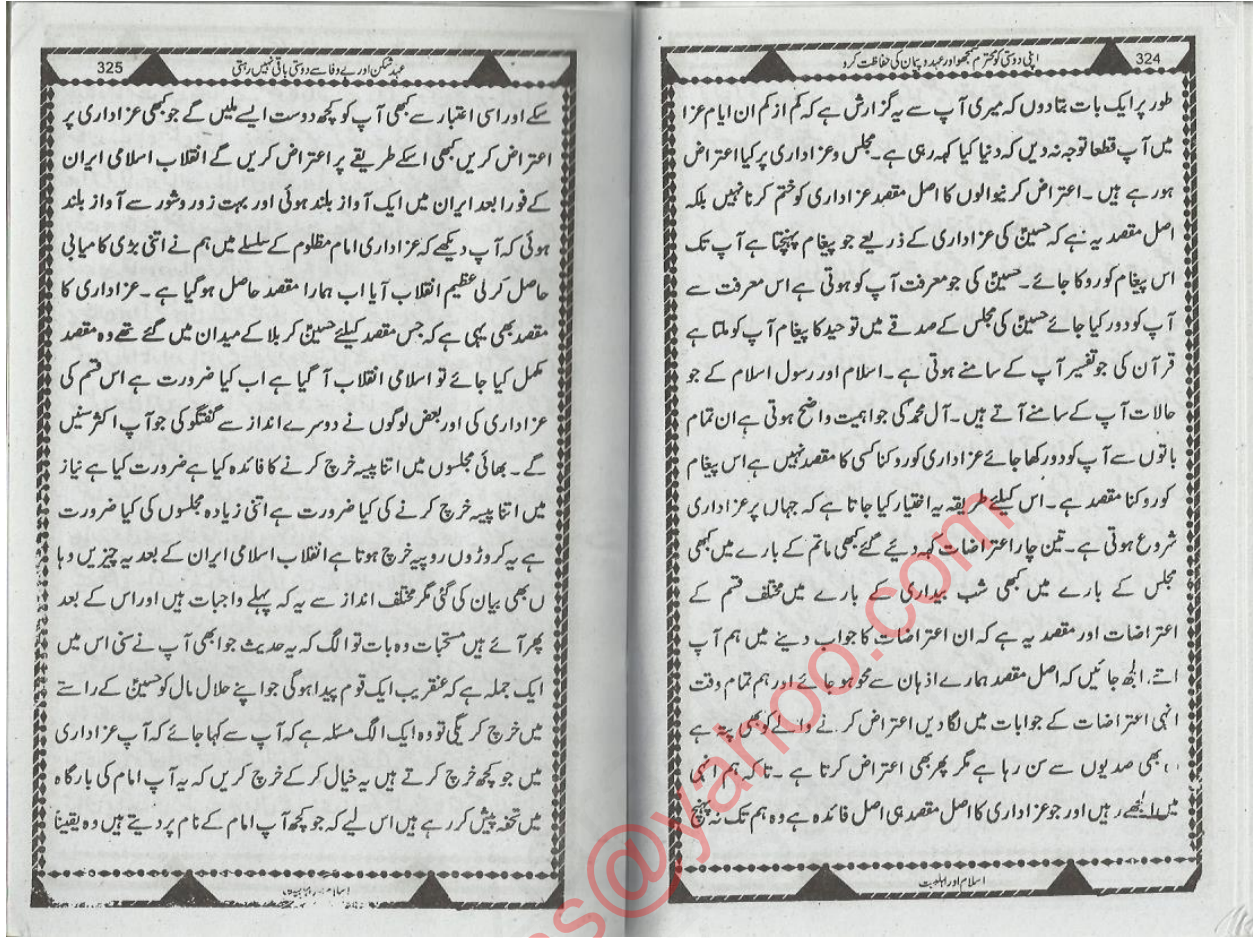 324
اپنی دوستی کو محترم سمجھو اور عہد و پیمان کی حفاظت کرو
طور پر ایک بات بتادوں کہ میری آپ سے یہ گزارش ہے کہ کم از کم ان ایام عزا
میں آپ قطعا توجہ نہ دیں کہ دنیا کیا کہہ رہی ہے۔ مجلس وعزاداری پر کیا اعتراض
ہورہے ہیں ۔ اعتراض کرنیوالوں کا اصل مقصد عزاداری کو ختم کرنا نہیں بلکہ
اصل مقصد یہ ہے کہ حسینؑ کی عزاداری کے ذریعے جو پیغام پہنچتا ہے آپ تک
اس پیغام کو روکا جائے۔ حسینؑ کی جو معرفت آپ کو ہوتی ہے اس معرفت سے
آپ کو دور کیا جائے حسینؑ کی مجلس کے صدقے میں توحید کا پیغام آپ کو ملتا ہے
قرآن کی جو تفسیر آپ کے سامنے ہوتی ہے۔ اسلام اور رسول اسلام کے جو
حالات آپ کے سامنے آتے ہیں۔ آل محمدؐ کی جو اہمیت واضح ہوتی ہے ان تمام
باتوں سے آپ کو دور رکھا جائے عزاداری کو روکنا کسی کا مقصد نہیں ہے اس پیغام
کو روکنا مقصد ہے۔ اس کیلئے طریقہ یہ اختیار کیا جاتا ہے کہ جہاں پر عزاداری
شروع ہوتی ہے۔ تین چار اعتراضات کہہ دیئے گئے کبھی ماتم کے بارے میں کبھی
مجلس کے بارے میں کبھی شب بیداری کے بارے میں مختلف قسم کے
اعتراضات اور مقصد یہ ہے کہ ان اعتراضات کا جواب دینے میں ہم آپ
اتنے الجھ جائیں کہ اصل مقصد ہمارے اذہان سے محو ہو جائے اور ہم تمام وقت
انہی اعتراضات کے جوابات میں لگادیں اعتراض کرنے والے کو بھی پتہ ہے
بھی صدیوں سے سن رہا ہے مگر پھر بھی اعتراض کرتا ہے ۔ تاکہ ہم انہی
میں الجھے رہیں اور جو عزاداری کا اصل مقصد ہی اصل فائدہ ہے وہ ہم تک نہ پہنچ
اسلام اور اہلبیت
325
عہد شکن اور بے وفا سے دوستی باقی نہیں رہتی
سکے اور اسی اعتبار سے کبھی آپ کو کچھ دوست ایسے ملیں گے جو کبھی عزاداری پر
اعتراض کریں کبھی اسکے طریقے پر اعتراض کریں گے انقلاب اسلامی ایران
کے فورا بعد ایران میں ایک آواز بلند ہوئی اور بہت زور وشور سے آواز بلند
ہوئی کہ آپ دیکھے کہ عزاداری امام مظلوم کے سلسلے میں ہم نے اتنی بڑی کامیابی
حاصل کر لی عظیم انقلاب آیا اب ہمارا مقصد حاصل ہوگیا ہے ۔ عزاداری کا
مقصد بھی یہی ہے کہ جس مقصد کیلئے حسینؑ کربلا کے میدان میں گئے تھے وہ مقصد
مکمل کیا جائے تو اسلامی انقلاب آگیا ہے اب کیا ضرورت ہے اس قسم کی
عزاداری کی اور بعض لوگوں نے دوسرے انداز سے گفتگو کی جو آپ اکثر سنیں
گے ۔ بھائی مجلسوں میں اتنا پیسہ خرچ کرنے کا فائدہ کیا ہے ضرورت کیا ہے نیاز
میں اتنا پیسہ خرچ کرنے کی کیا ضرورت ہے اتنی زیادہ مجلسوں کی کیا ضرورت
ہے یہ کروڑوں روپیہ خرچ ہوتا ہے انقلاب اسلامی ایران کے بعد یہ چیزیں وہا
ں بھی بیان کی گئی مگر مختلف انداز سے یہ کہ پہلے واجبات ہیں اور اس کے بعد
پھر آئے ہیں مستحبات وہ بات تو الگ کہ یہ حدیث جو ابھی آپ نے سنی اس میں
ایک جملہ ہے کہ عنقریب ایک قوم پیدا ہوگی جو اپنے حلال مال کو حسینؑ کے راستے
میں خرچ کریگی تو وہ ایک الگ مسئلہ ہے کہ آپ سے کہا جائے کہ آپ عزاداری
میں جو کچھ خرچ کرتے ہیں یہ خیال کر کے خرچ کریں کہ یہ آپ امام کی بارگاہ
میں تحفہ پیش کر رہے ہیں اس لیے کہ جو کچھ آپ امام کے نام پر دیتے ہیں وہ یقینا
s@yahoo.com